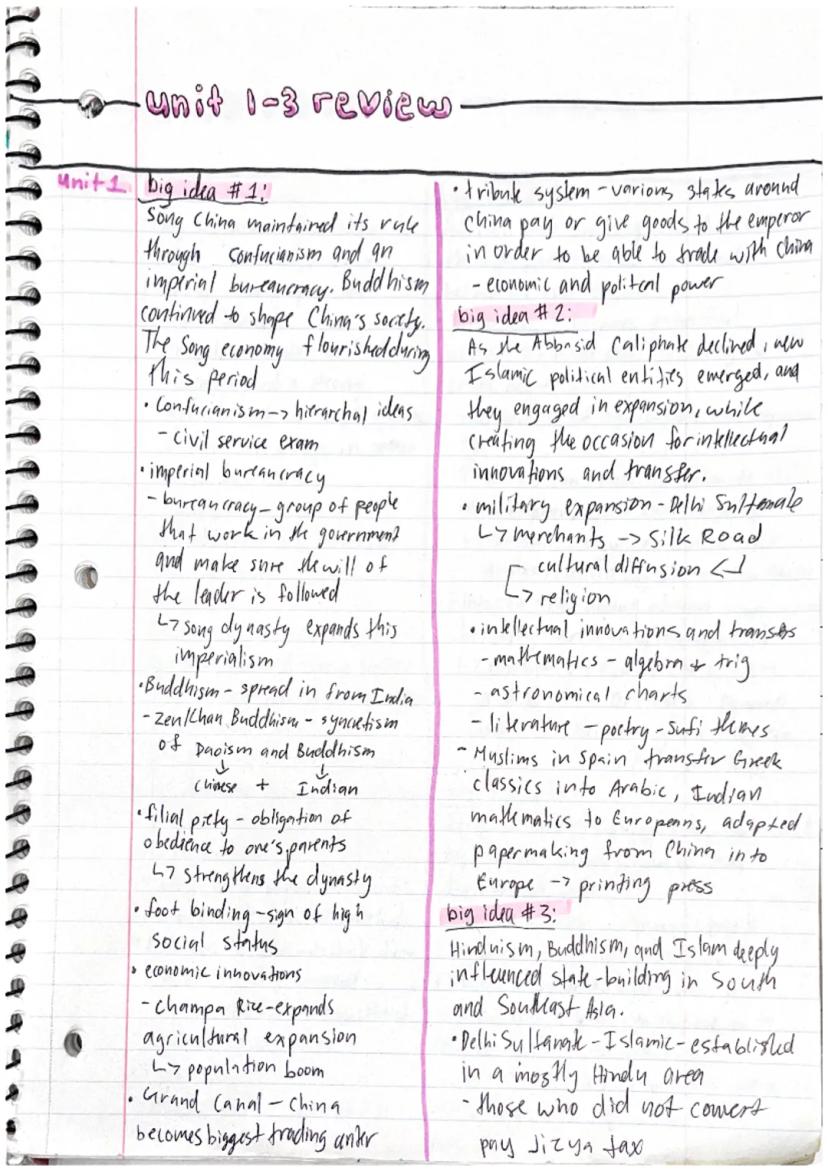 unit 1-3 review
unit 1
big idea #1:
Song China maintained its rule
through confucianism and an
imperial bureaucracy. Buddhism
continued to shape China's society.
The Song economy flourished during
this period
• Confucianism -> hierarchal ideas
- civil service exam
• imperial bureaucracy
- bureaucracy - group of people
that work in the government
and make sure the will of
the leader is followed
↳ song dynasty expands this
imperialism
• Buddhism - spread in from India
- Zen/Chan Buddhism - syncretism
of Daoism and Buddhism
↓ ↓
Chinese + Indian
• filial piety - obligation of
obedience to one's parents
↳ strengthens the dynasty
• foot binding - sign of high
social status
• economic innovations
- champa Rice - expands
agricultural expansion
↳ population boom
• Grand Canal - China
becomes biggest trading
• tribute system - various states around
china pay or give goods to the emperor
in order to be able to trade with china
- economic and political power
big idea #2:
As the Abbasid Caliphate declined, new
Islamic political entities emerged, and
they engaged in expansion, while
creating the occasion for intellectual
innovations and transfer.
• military expansion - Delhi Sultanate
↳ merchants -> Silk Road
cultural diffusion ↲
↳ religion
• intellectual innovations and transfers
- mathematics - algebra + trig
- astronomical charts
- literature - poetry - Sufi themes
- Muslims in Spain transfer Greek
classics into Arabic, Indian
mathematics to Europeans, adapted
papermaking from China into
Europe -> printing press
big idea #3:
Hinduism, Buddhism, and Islam deeply
influenced state-building in South
and Southeast Asia.
• Delhi Sultanate - Islamic - established
in a mostly Hindu area
- those who did not convert
pay Jizya tax